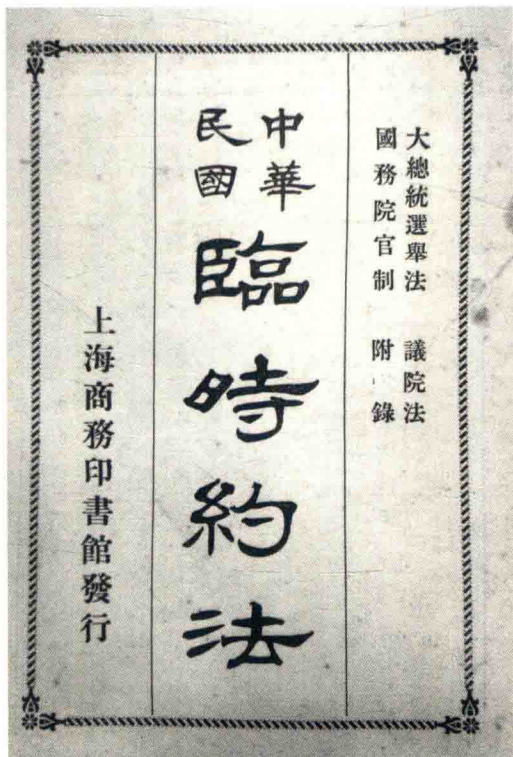 大總統選舉法　議院法
國務院官制　附錄
中華
民國
臨時約法
上海商務印書館發行